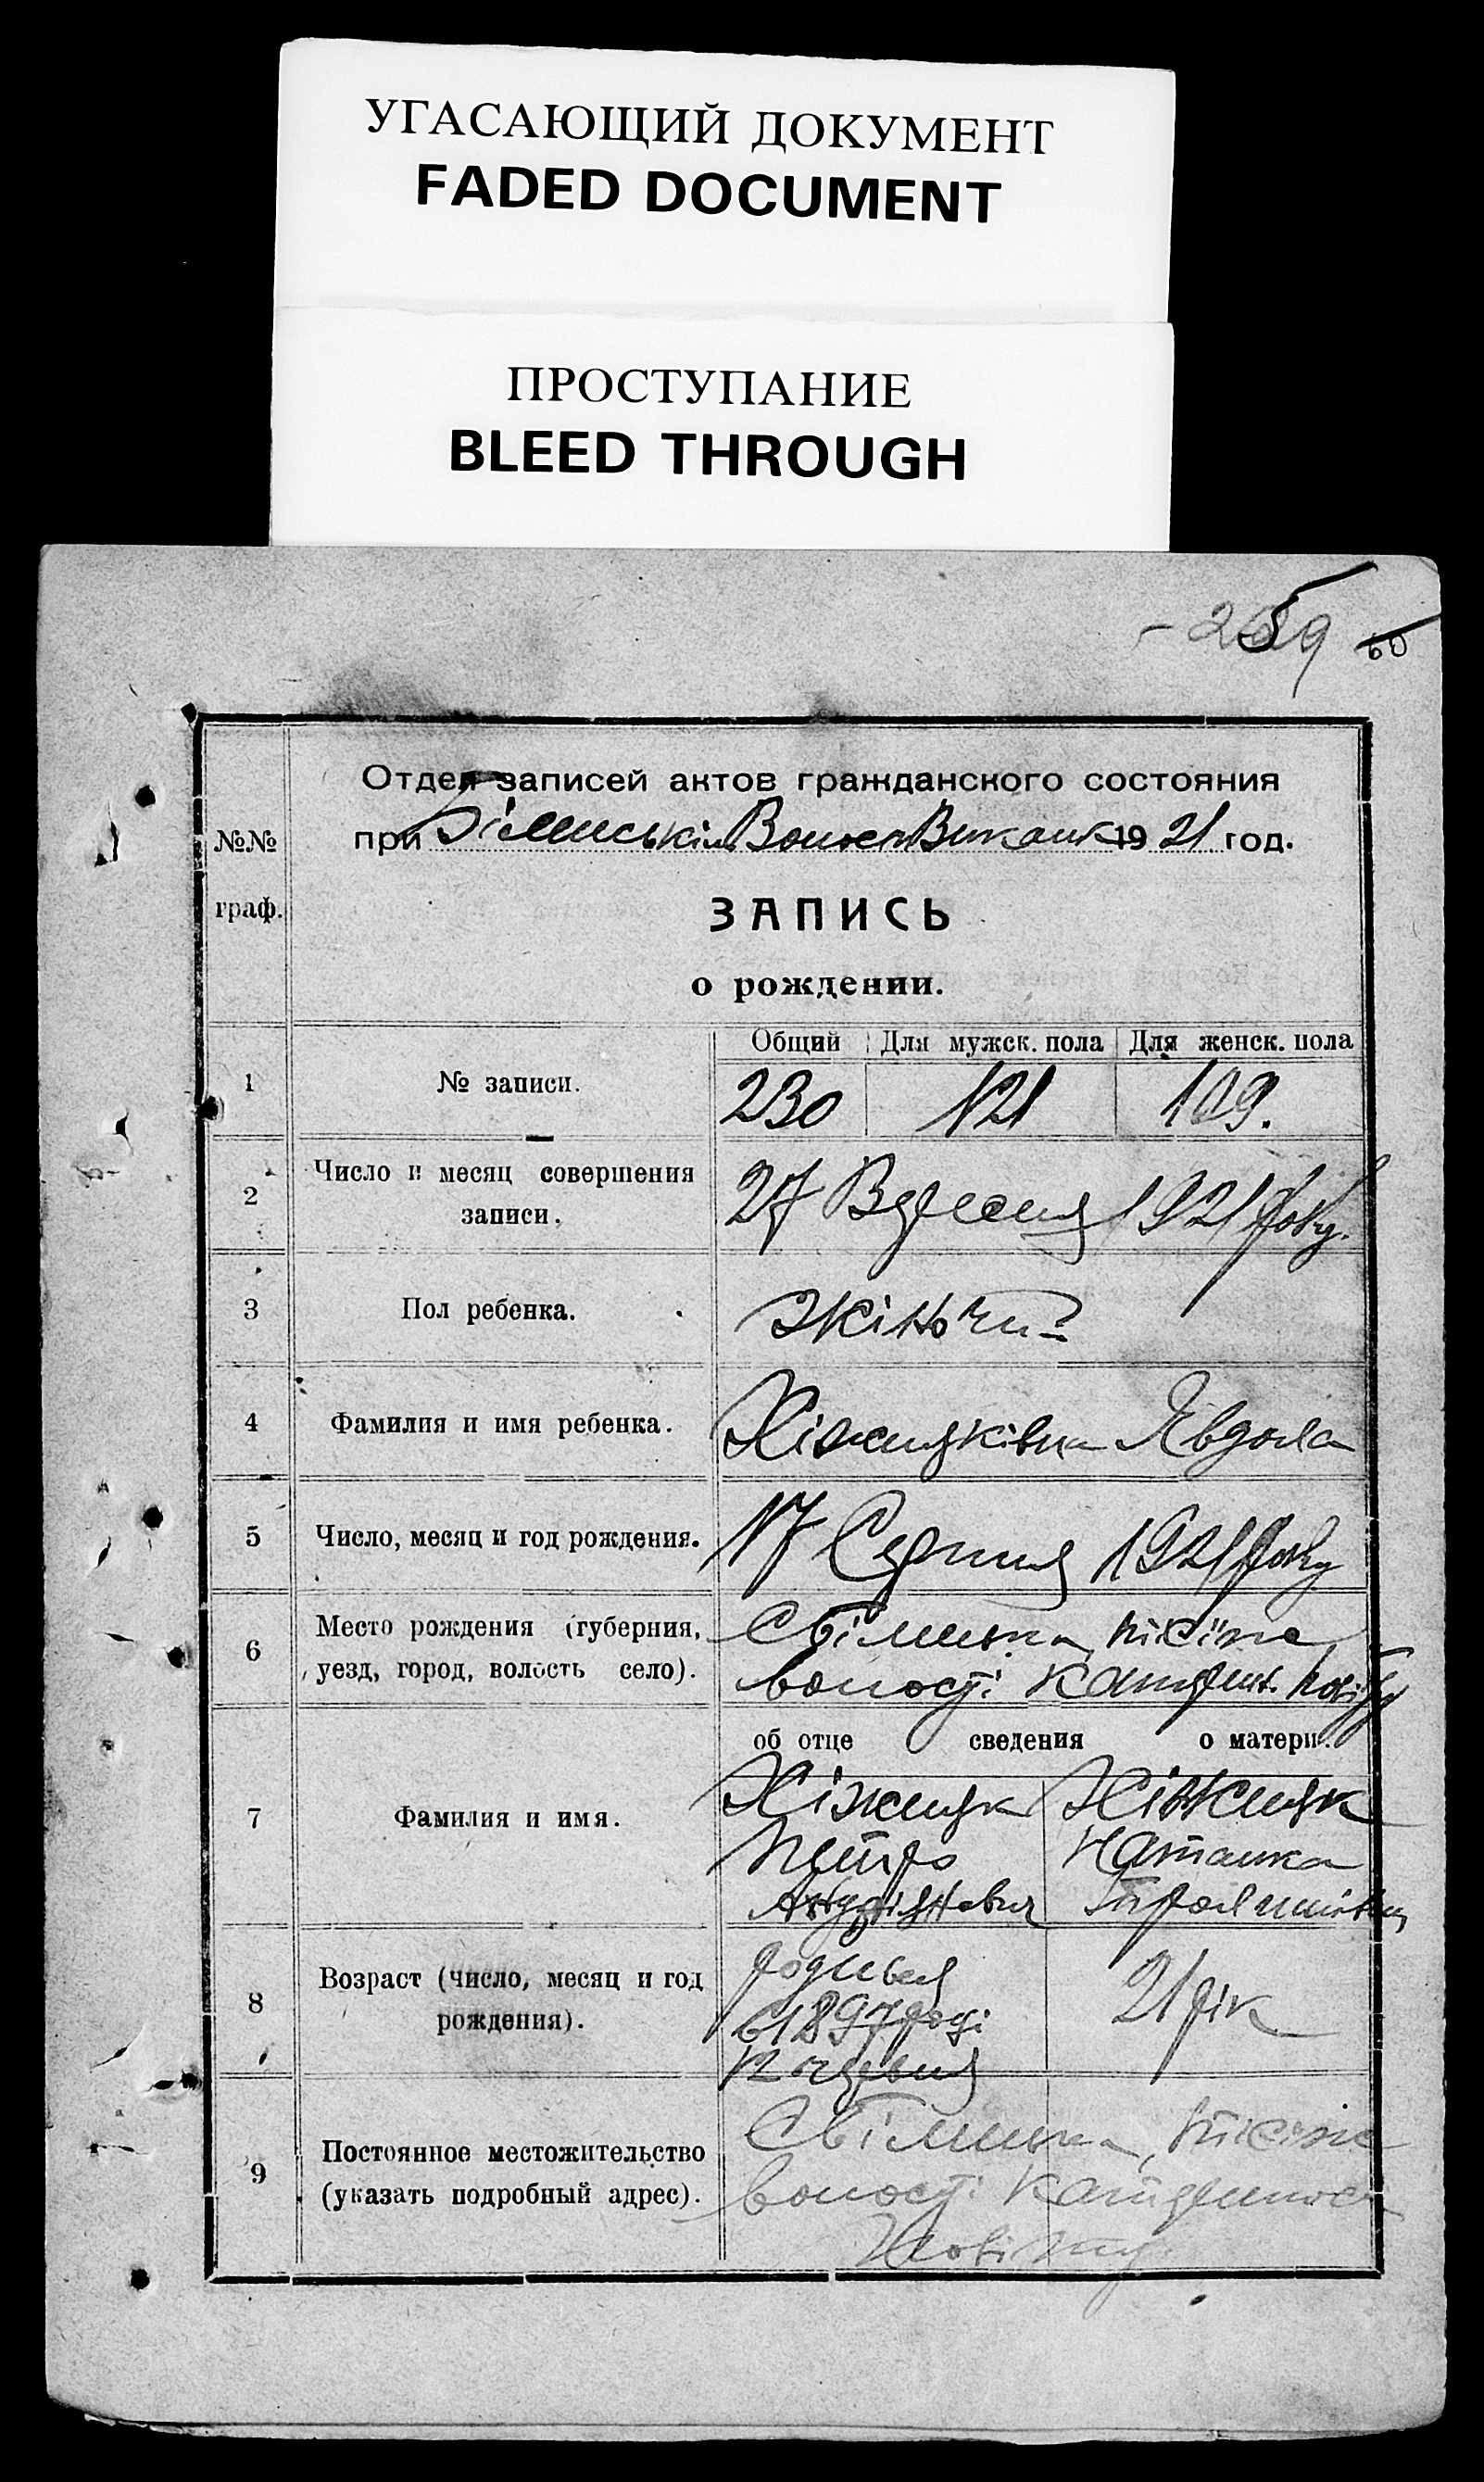 УГАСАЮЩИЙ ДОКУМЕНТ
FADED DOCUMENT
ПРОСТУПАНИЕ
BLEED THROUGH
259 60
Отдел записей актов гражданского состояния
при 1921 год.
№№
граф.
ЗАПИСЬ
о рождении.
Общий Для мужск. пола Для женск. пола
1 № записи. 230 121 109.
2 Число и месяц совершения
записи. 27 Вересня 1921 року.
3 Пол ребенка. жіночий
4 Фамилия и имя ребенка. Хіжняківна Явдоха
5 Число, месяц и год рождения. 17 Серпня 1921 року
6 Место рождения (губерния,
уезд, город, волость село).
волості повіту
об отце сведения о матери.
7 Фамилия и имя.
Хіжняк Хіжняк
Петро Наталка
8 Возраст (число, месяц и год
рождения).
родився
в 1897 році 21 рік
12 червня
9 Постоянное местожительство
(указать подробный адрес).
волості
повіту